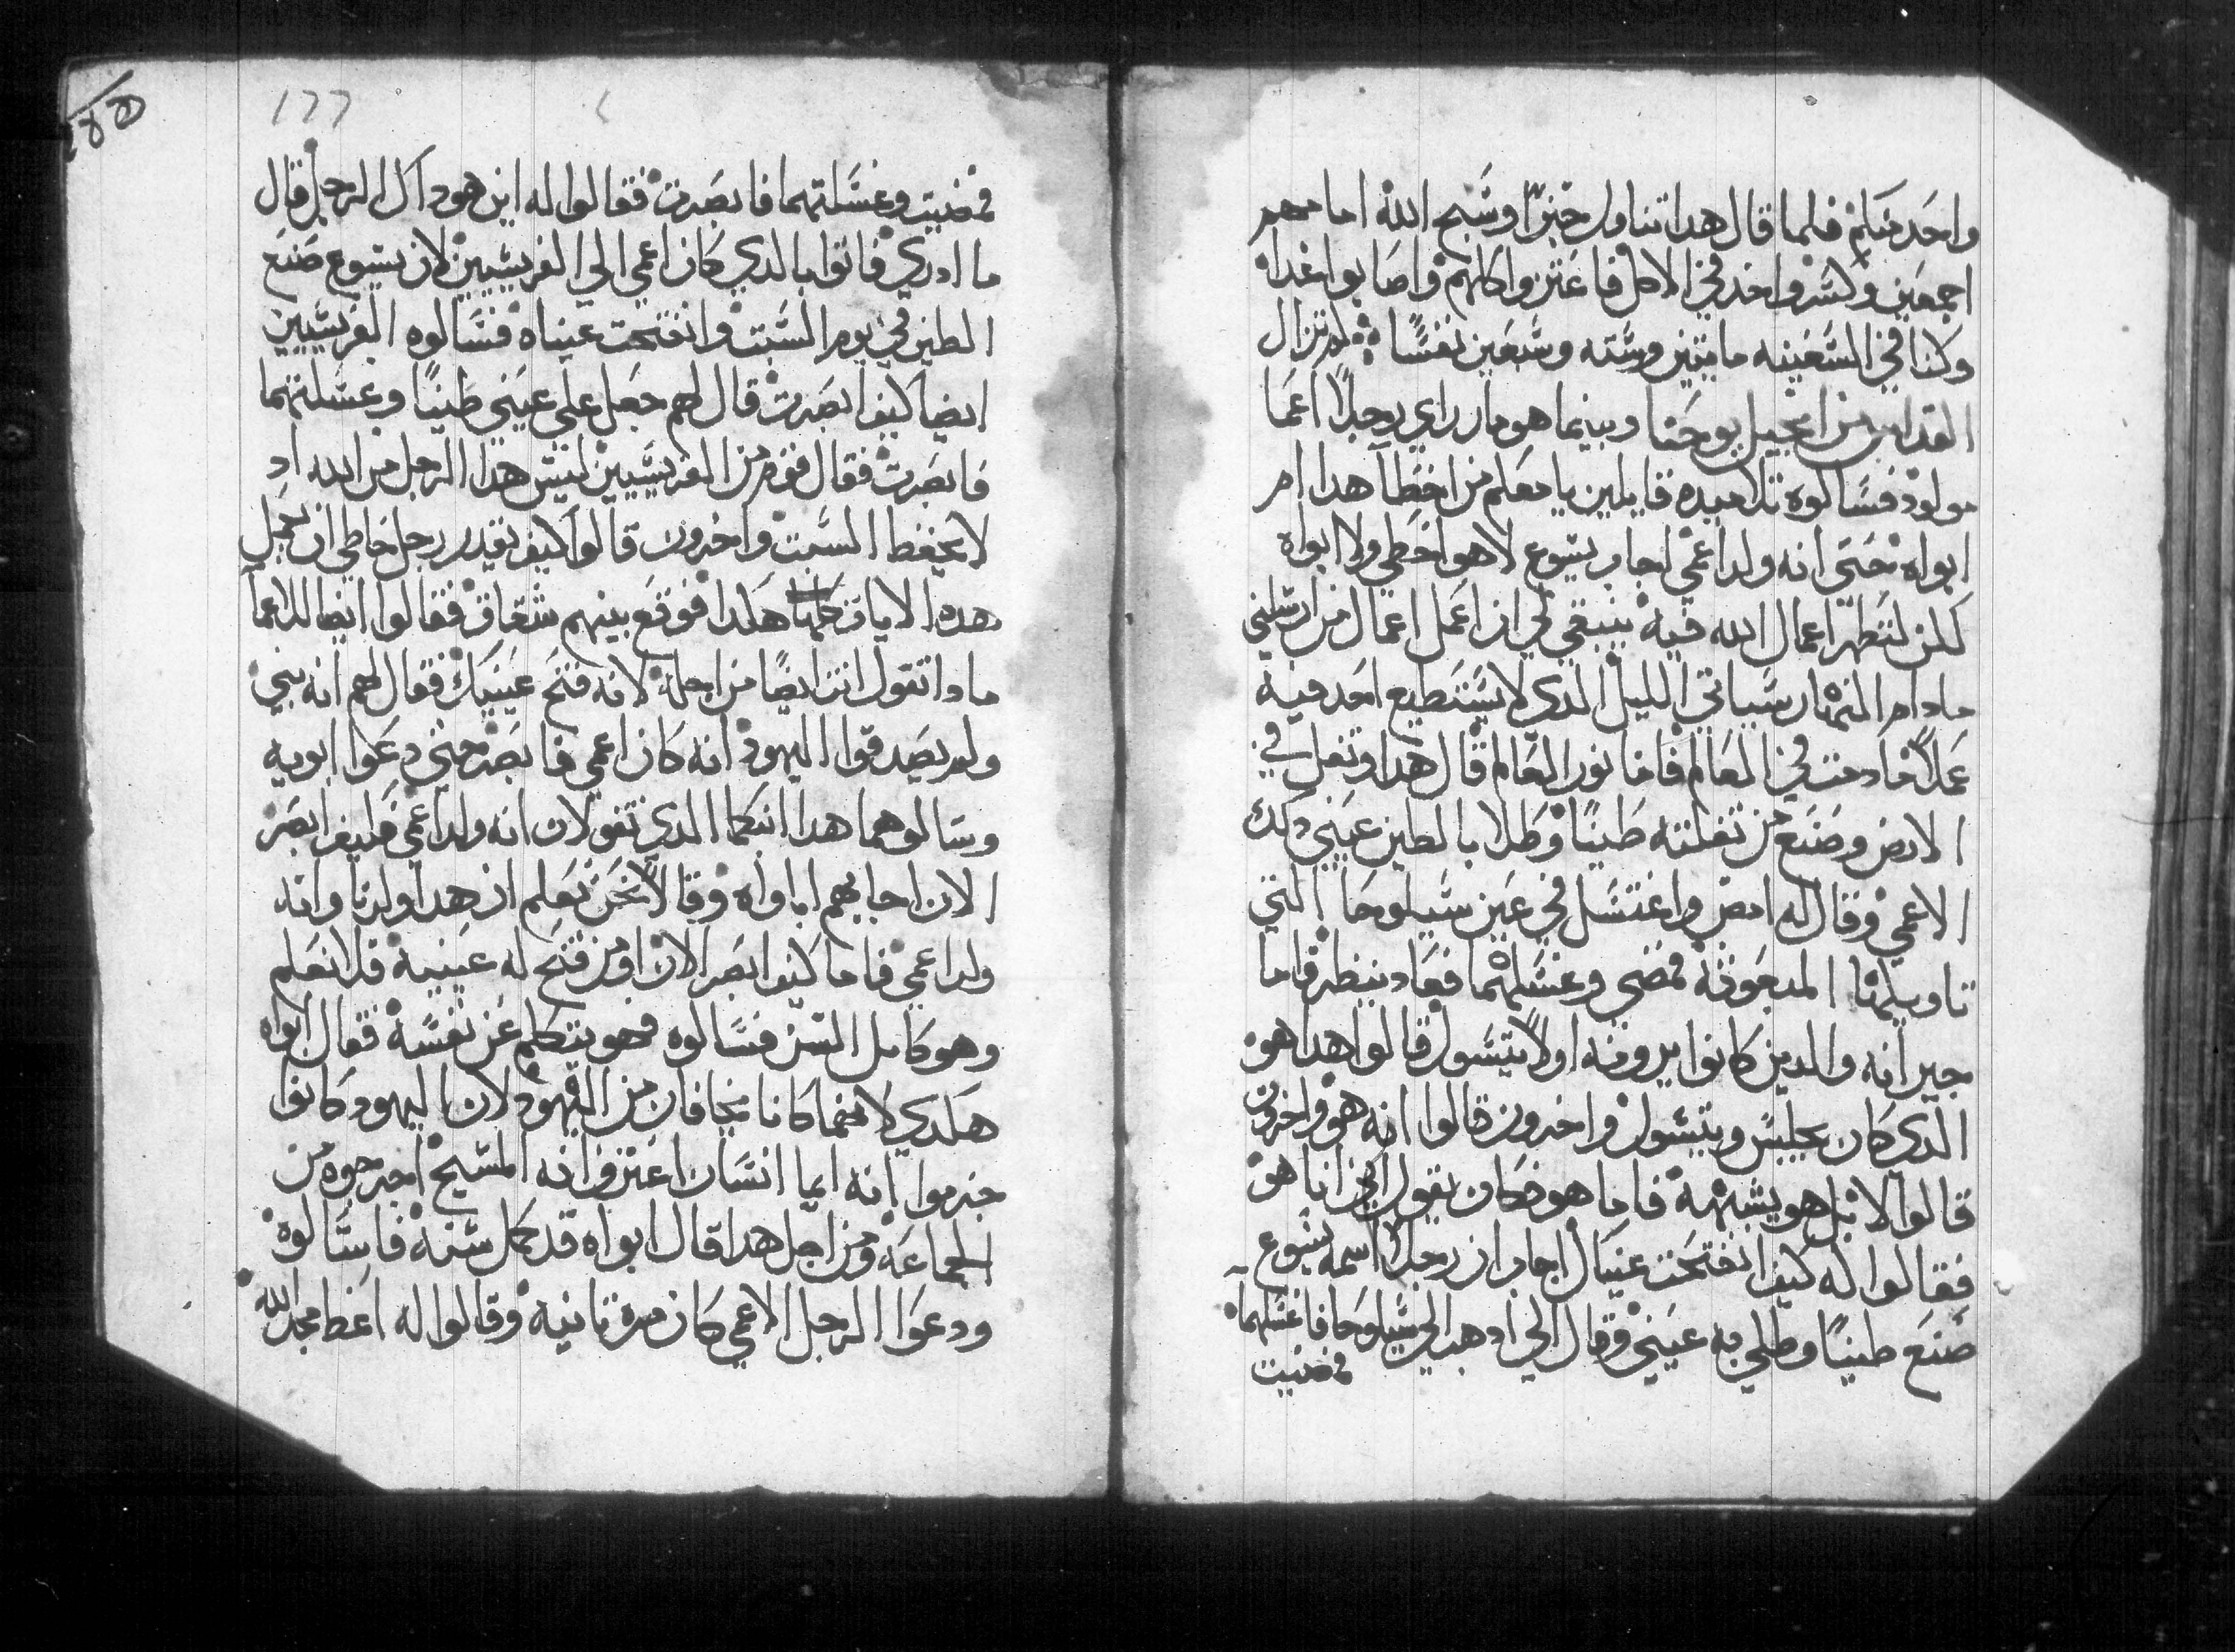 واحد منكم فلما قال هدا تناول خبزا وسبح الله امامهم
اجمعين وكسر واخد في الاكل فاعتزوا كلهم واصابوا غداا
وكنا في السفينه مايتين وسته وسبعين نفسا لم تزال
القداس من انجيل يوحنا وبينما هو مار راي رجلا اعما
مولود فسالوه تلاميده قايلين يا معلم من اخطا هدا ام
ابواه حتى انه ولد اعمي اجاب يسوع لا هو اخطي ولا ابواه
لكن لتظهر اعمال الله فيه ينبغي لي ان اعمل اعمال من ارسلني
مادام النهار سياتي الليل الدي لا يستطيع احد فيه
عملا مادمت في العالم فانا نور العالم قال هدا وتفل في
الارض وصنع من تفلته طينا وطلا بالطين عيني دلك
الاعمي وقال له امض واغتسل في عين سيلوحا التي
تاويلها المبعوثه فمضي وغسلهما فعاد ينظر فاما
جيرانه والدين كانوا يرونه اولا يتسول قالوا هدا هو
الدي كان يجلس ويتسول واخرون قالوا انه هو واخرون
قالوا لا بل هو يشبهه فاما هو فكان يقول اني انا هو
فقالوا له كيف انفتحت عيناك اجاب ان رجلا اسمه يسوع
صنع طينا وطلي به عيني وقال لي ادهب الي سيلوحا فاغسلهما
فمضيت
١٦٦
فمضيت وغسلتهما فابصرت فقالوا له اين هو داك الرجل قال
ما ادري فاتوا بالدي كان اعمي الي الفريسيين لان يسوع صنع
الطين في يوم السبت وانفتحت عيناه فسالوه الفريسيين
ايضا كيف ابصرت قال لهم جعل علي عيني طينا وغسلتهما
فابصرت فقال قوم من الفريسيين ليس هدا الرجل من الله اد
لا يحفظ السبت واخرون قالوا كيف يقدر رجل خاطي ان يعمل
هده الايات هكدا فوقع بينهم شقاق فقالوا ايضا للاعما
مادا تقول انت ايضا من اجله لانه فتح عينيك فقال لهم انه نبي
ولم يصدقوا اليهود انه كان اعمي فابصر حتي دعوا ابويه
وسالوهما هدا ابنكما الدي تقولان انه ولد اعمي فكيف ابصر
الان اجابهم ابواه وقالا نحن نعلم ان هدا ولدنا وانه
ولد اعمي فاما كيف ابصر الان او من فتح له عينيه فلا نعلم
وهو كامل السن فسالوه فهو يتكلم عن نفسه فقال ابواه
هكدي لانهما كانا يخافان من اليهود لان اليهود كانوا
جزموا انه ايما انسان اعترف انه المسيح اخرجوه من
الجماعه ومن اجل هدا قال ابواه قد كمل سنه فاسالوه
ودعوا الرجل الاعمي كان مرة تانيه وقالوا له اعط مجد الله